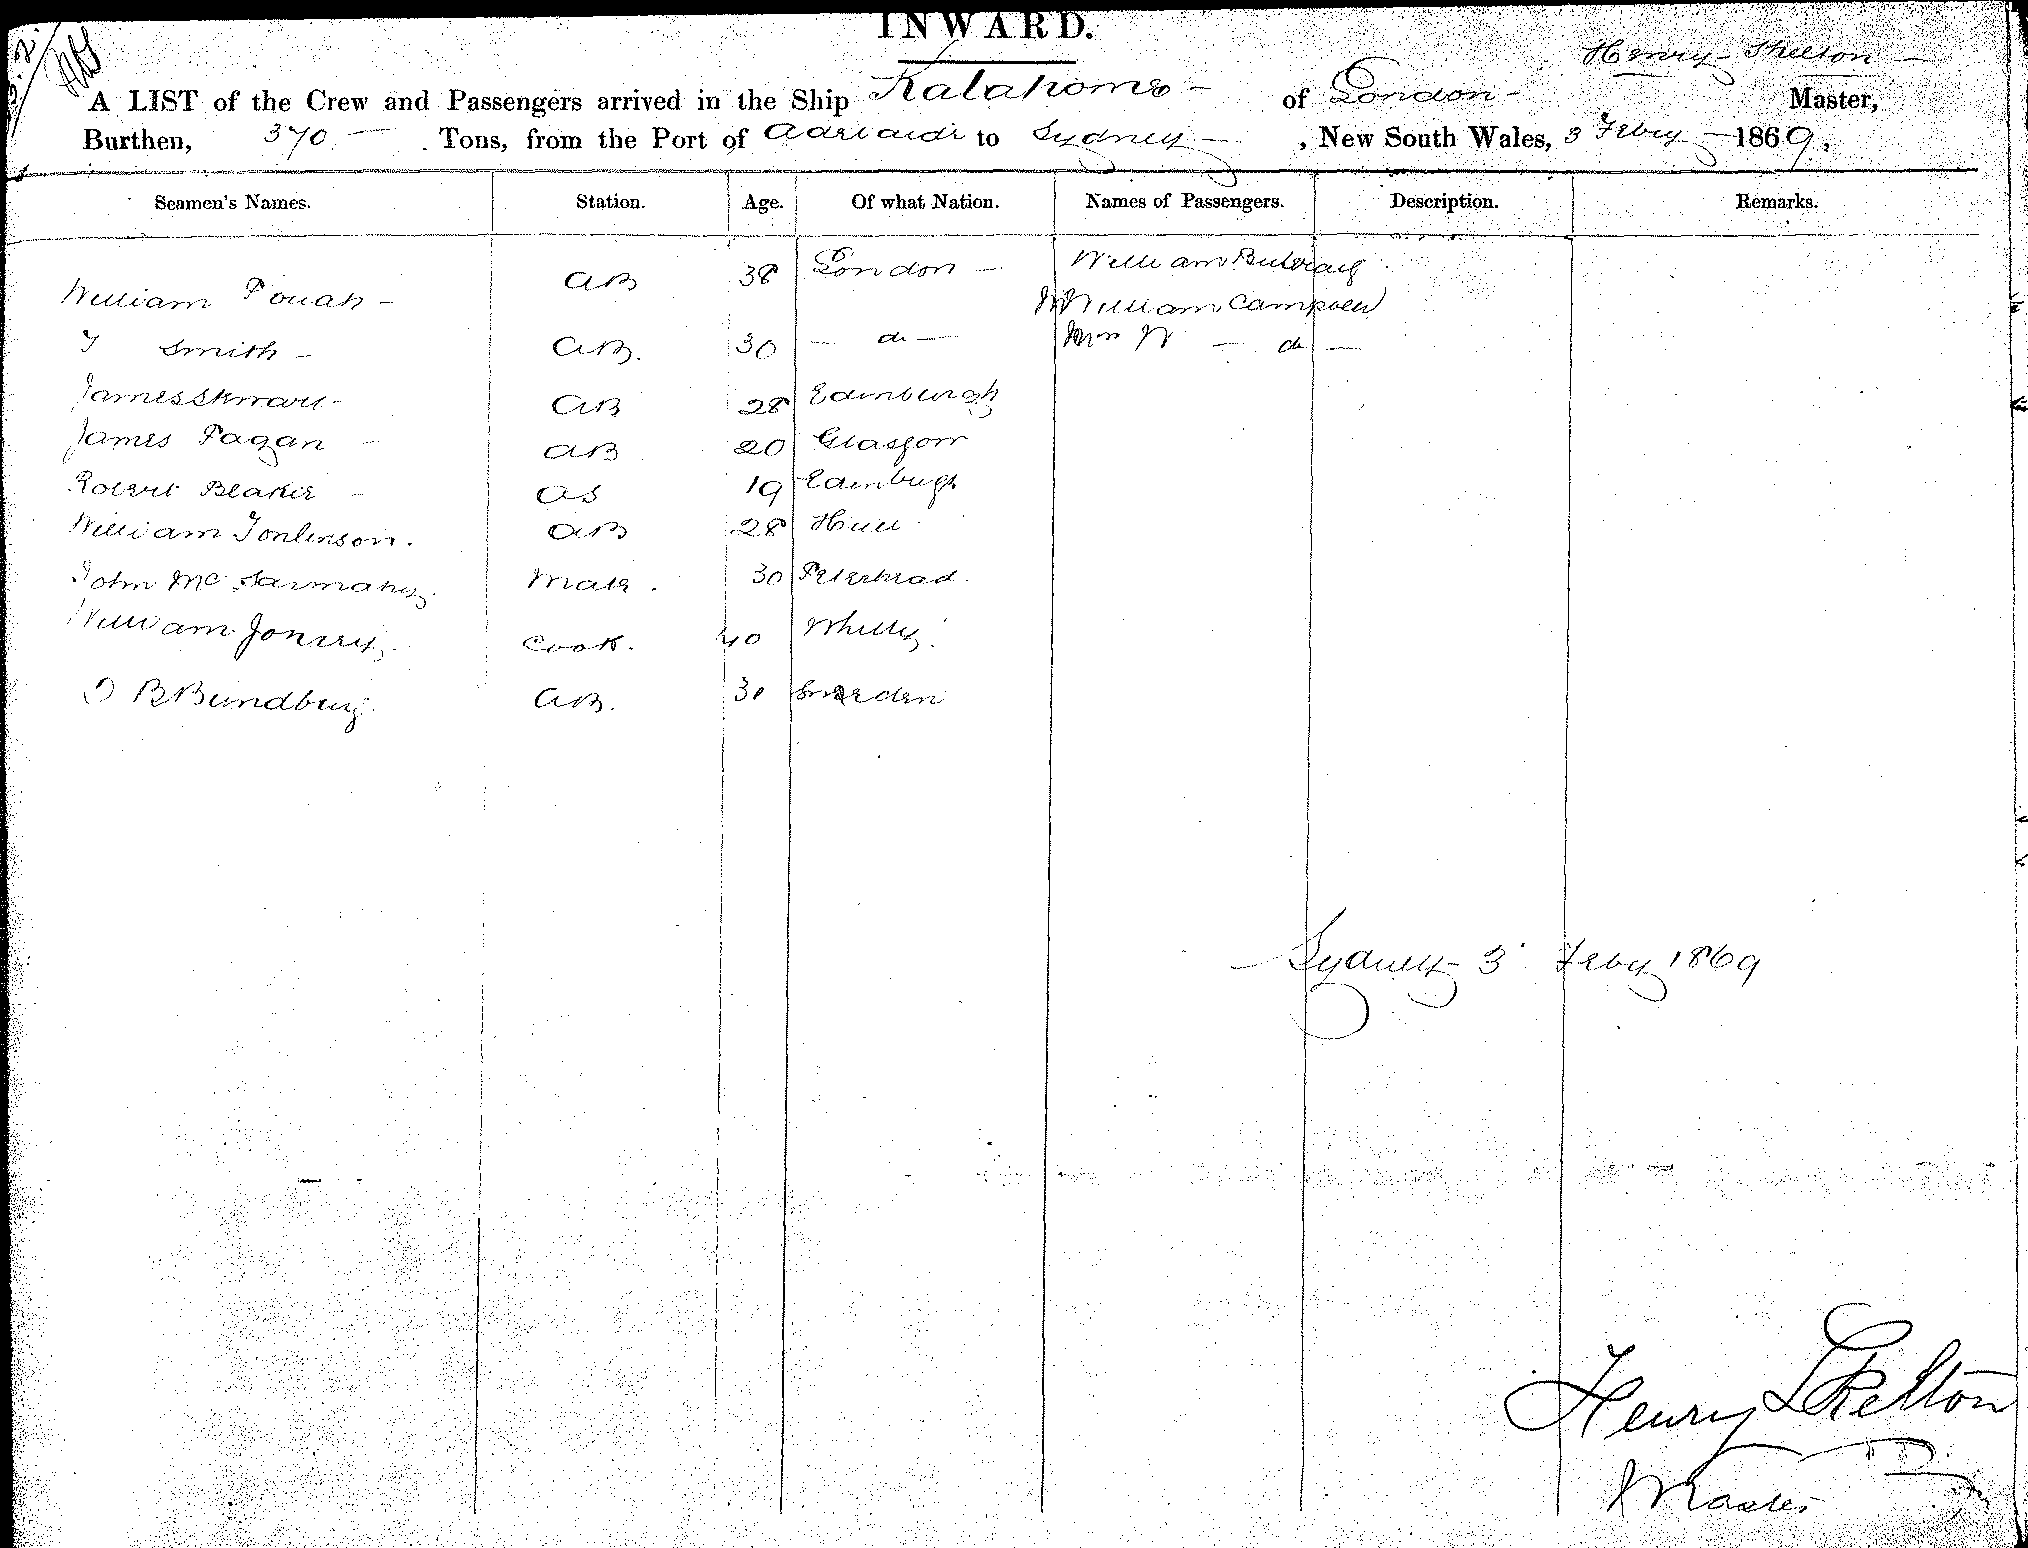 INWARD.
Henry Skelton
A LIST of the Crew and Passengers arrived in the Ship Kalahome of London Master,
Burthen, 370 Tons, from the Port of Adelaide to Sydney, New South Wales, 3 Feby 1869.
Seamen's Names. Station. Age. Of what Nation. Names of Passengers. Description. Remarks.
William AB 38 London William
William Campbell
Smith AB. 30 do Mrs W do
James Stewart AB 28 Edinburgh
James Fagan AB 20 Glasgow
Robert Blakie OS 19 Edinburgh
William Tomlinson. AB 28 Hull
John Mc Mate. 30 Peterhead
William Cook. 40 Whitby
B Bundburg AB. 30 Sweden
Sydney 3 Feby 1869
Henry Skelton
Master